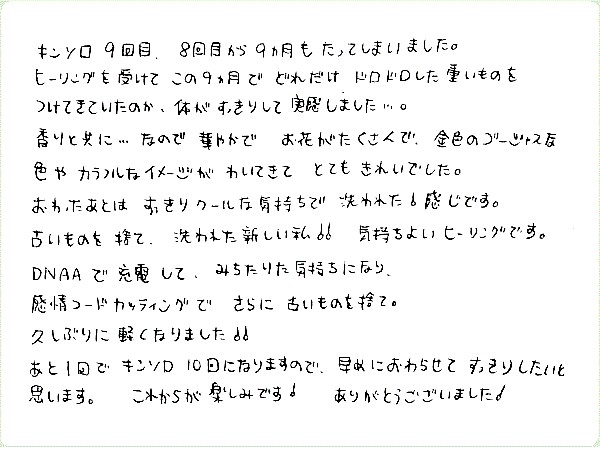 キンソロ 9回目、8回目から9ヵ月も たってしまいました。
ヒーリングを受けて この9ヵ月で どれだけ ドロドロした重いものを
つけてきていたのか、体が すっきりして 実感しました…。
香りと共に… なので 華やかで お花がたくさんで、金色のゴージャスな
色や カラフルなイメージが わいてきて とても きれいでした。
おわったあとは すっきりクールな気持ちで 洗われた！感じです。
古いものを捨て、洗われた新しい私!! 気持ちよいヒーリングです。
DNAAで 充電して、みちたりた気持ちになり、
感情コードカッティングで さらに 古いものを捨て。
久しぶりに 軽くなりました!!
あと1回で キンソロ 10回になりますので、早めにおわらせて すっきりしたいと
思います。 これからが 楽しみです！ ありがとうございました！